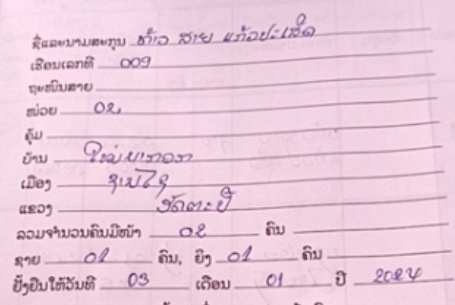 ຊື່ແລະນາມສະກຸນ ທ້າວ ສາຍ ແກ້ວປະເສີດ
ເຮືອນເລກທີ 009
ຖະໜົນສາຍ
ໜ່ວຍ 02
ຄຸ້ມ
ບ້ານ ໃໝ່
ເມືອງ ຊານໄຊ
ແຂວງ ອັດຕະປື
ລວມຈຳນວນຄົນມີໜ້າ 02 ຄົນ
ຊາຍ 01 ຄົນ, ຍິງ 01 ຄົນ
ຢັ້ງຢືນໃຫ້ວັນທີ 03 ເດືອນ 01 ປີ 2024